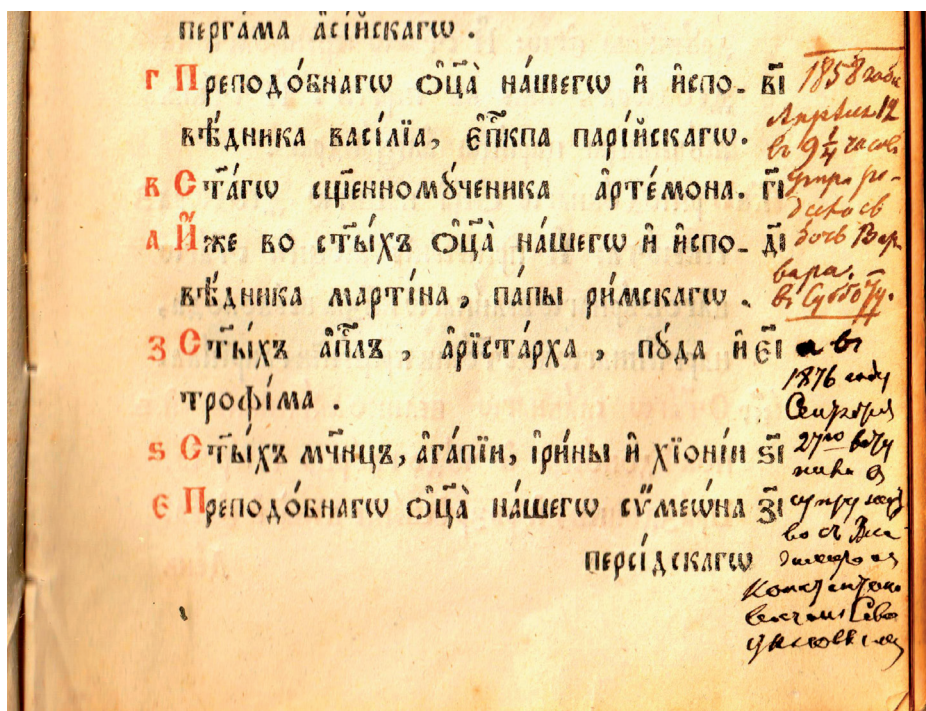 перга́ма а҆сі́йскагѡ .
г Преподо́бнагѡ ѻ҆ц҃а̀ на́шегѡ и҆ и҆спо- в҃і
вѣ́дника васі́лїа, є҆п҃кпа парі́йскагѡ.
в С҃та́гѡ сщ҃енномꙋ́ченика а҆рте́мона. г҃і
а И҆́же во ст҃ы́хъ ѻ҆ц҃а̀ на́шегѡ и҆ и҆спо- д҃і
вѣ́дника марті́на , па́пы ри́мскагѡ .
з Ст҃ы́хъ а҆п҃лъ , а҆рїста́рха , пꙋ́да и҆ є҃і
трофі́ма .
ѕ Ст҃ы́хъ мч҃нцъ, а҆га́пїи, і҆ри́ны и҆ хїоні́и ѕ҃і
є Преподо́бнагѡ ѻ҆ц҃а̀ на́шегѡ сѷмеѡ́на з҃і
персі́дскагѡ
1858 года
Апрѣля 12
въ 9 1/4 часовъ
утра ро-
дилась
дочь Вар-
вара.
въ Субботу.
а въ
1876 году
Сентября
27го
во съ Вла
Константино